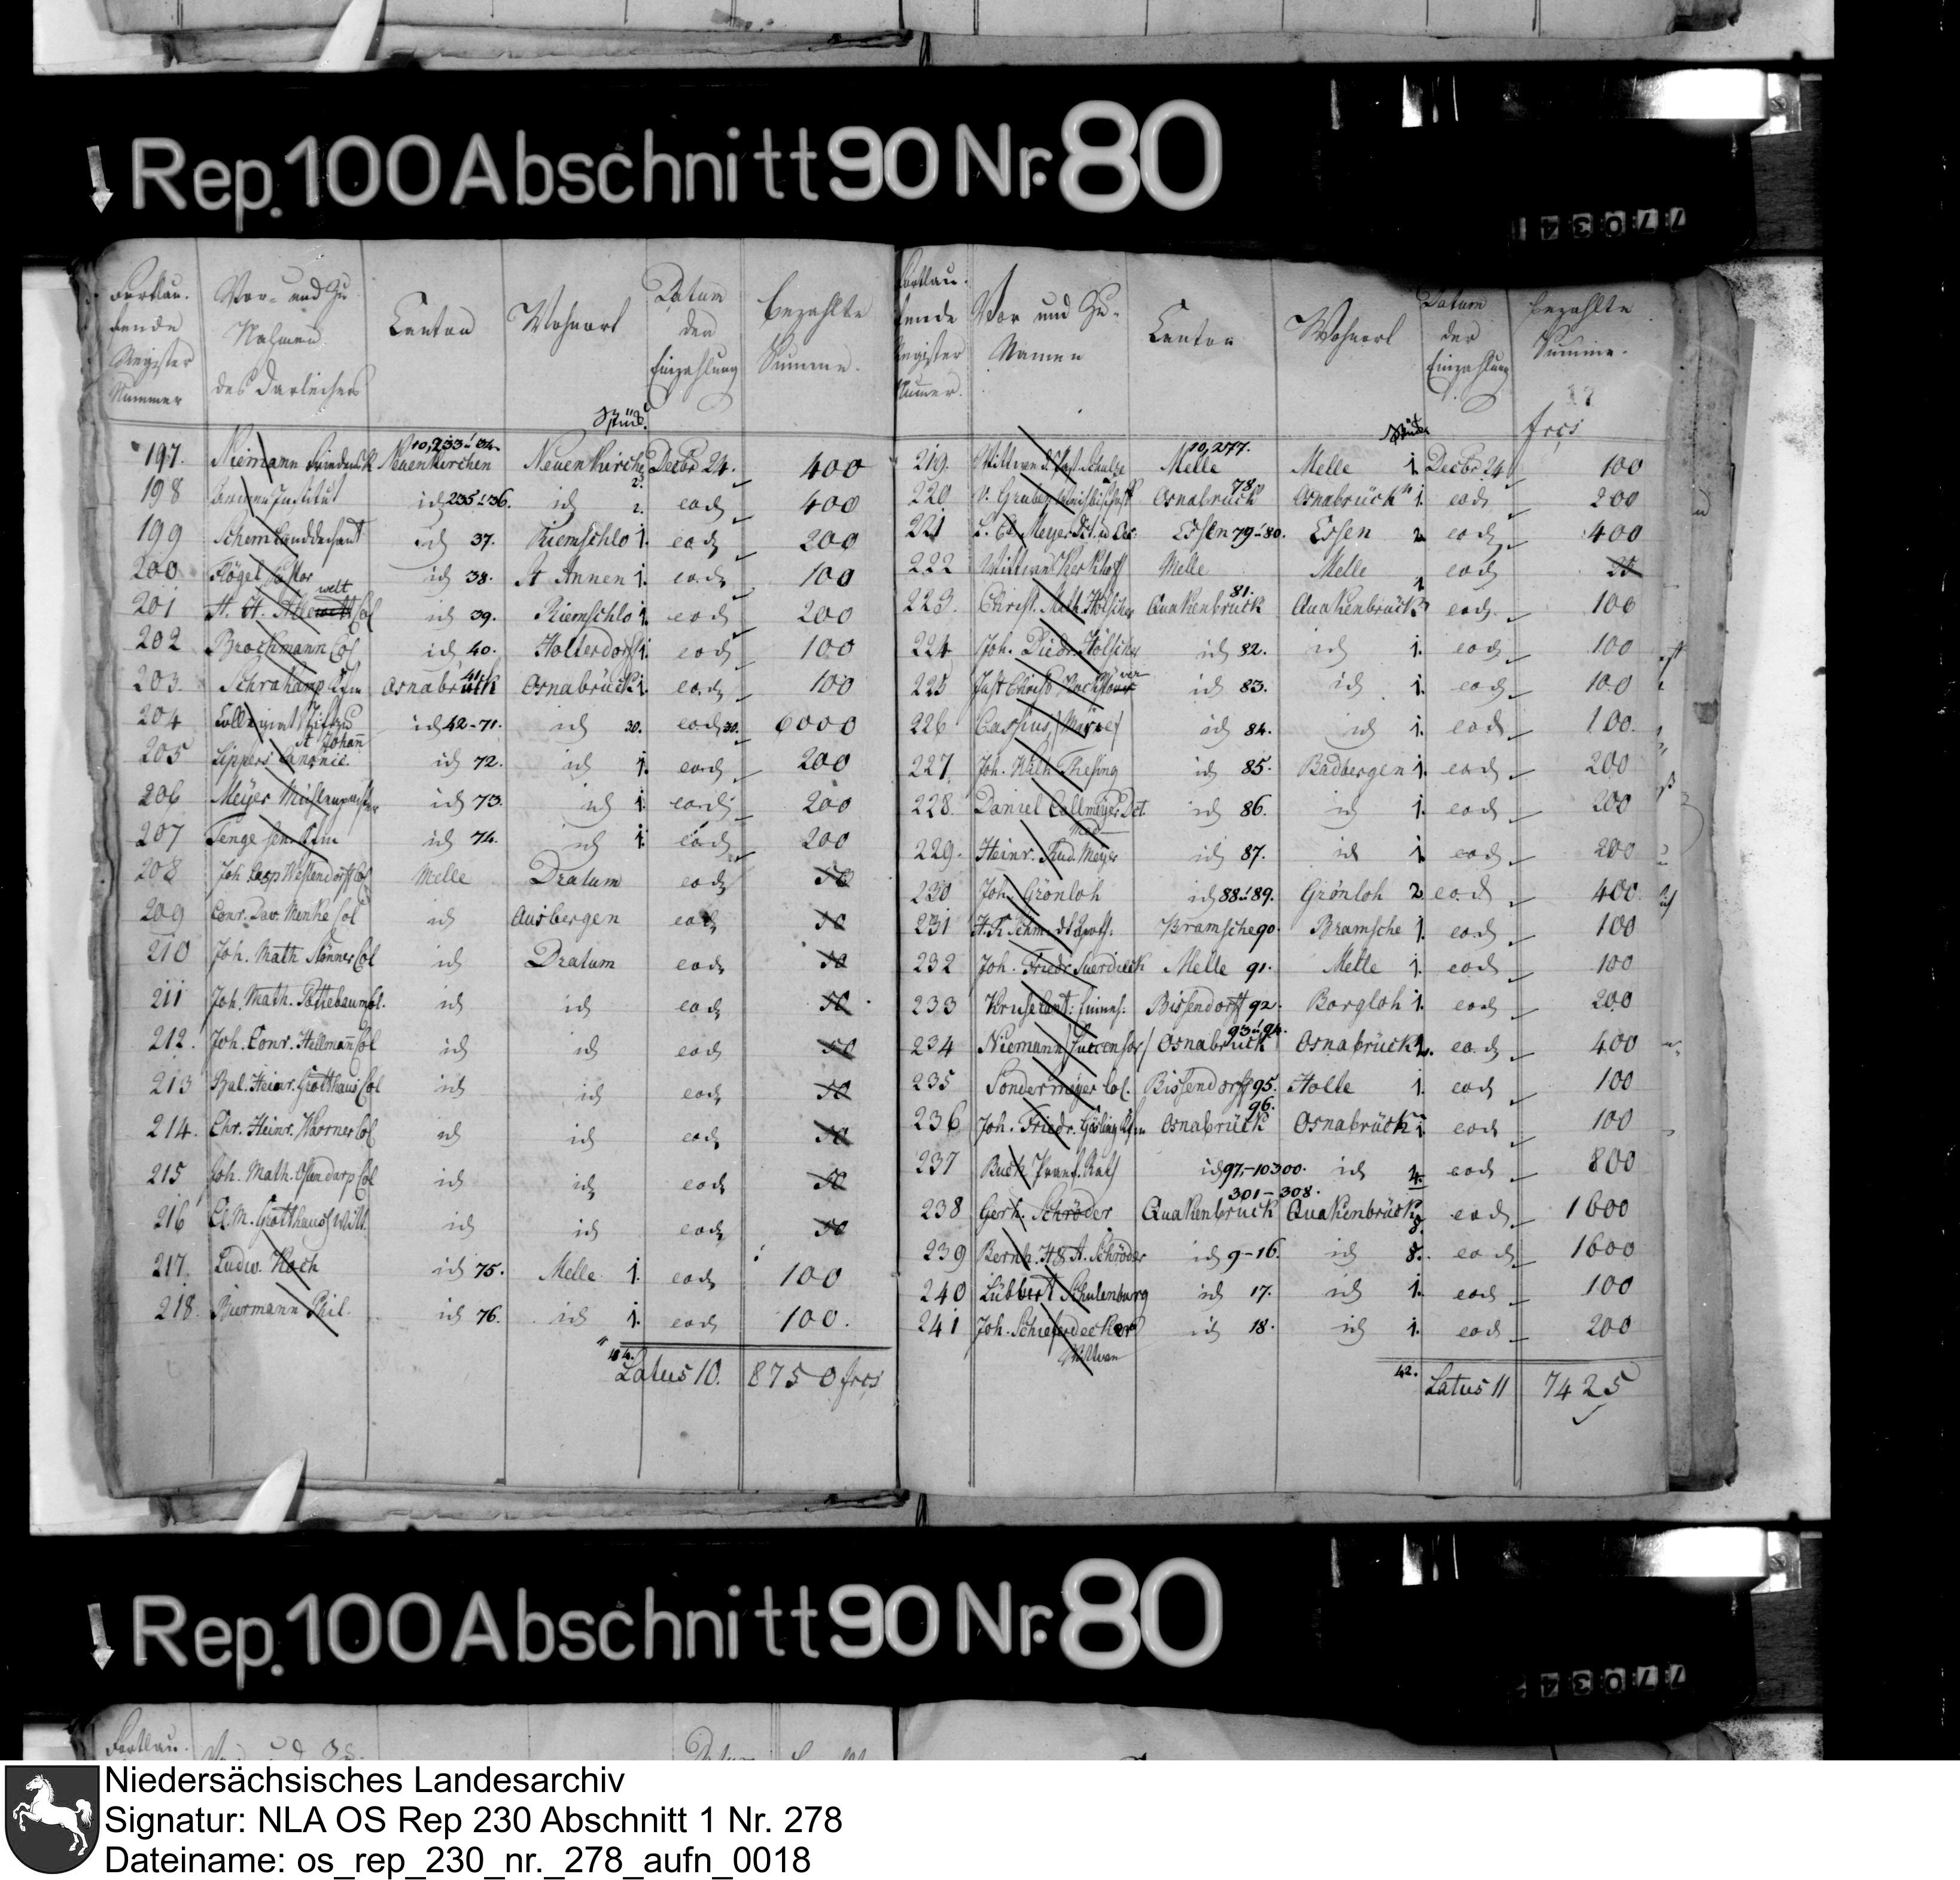 Rep. 100 Abschnitt 90 Nr. 80
77034
Fortlau- Vor- und Zu Canton Wohnort Datum bezahlte
fende Nahmen der Summe.
Register des Darleihers Einzahlung
Nummer
Stück
197. Niemann Neuenkirchen 10,233 u 34. Neuenkirchen 2. Decbr 24. 400
198 Institut id 235 u 36. id 2. eod 400
199 Schem Landdechant id 37. Riemschlo 1. eod 200
200 Flögel Pastor id 38. St Annen 1. eod 100
201 welt Col id 39. Riemschlo 1. eod 200
202 Brockmann Col id 40. Holterdorf 1. eod 100
203. Schrakamp Kfm Osnabrück 41. Osnabrück 1. eod 100
204 St Johann id 42-71. id 30. eod 30. 6000
205 Lippers Canonic. id 72. id 1. eod 200
206 Meyer id 73. id 1. eod 200
207 Tenge sen. Kfm id 74. id 1. eod 200
208 Joh Casp Westendorff Col Melle Dratum eod 50
209 Conr. Dav. Menke Col id Ausbergen eod 50
210 Joh. Math Nönner Col id Dratum eod 50
211 Joh. Math. Pottebaum Col. id id eod 50
212. Joh. Conr. Hellmann Col id id eod 50
213 Bal. Heinr. Grotthaus Col id id eod 50
214. Chr. Heinr. Warner Col id id eod 50
215 Joh. Math. Ostendarp Col id id eod 50
216 Cl. M. Grotthaus Witt. id id eod 50
217. Ludw. Koch id 75. Melle 1. eod 100
218. Biermann Phil. id 76. id 1. eod 100.
Latus 10. 8750 frcs
Fortlau- Vor und Zu- Canton Wohnort Datum bezahlte
fende Namen der Summe.
Register Einzahlung
Numer.
Stück frcs
219. Wittwe Schulze Melle 10,277. Melle 1. Decbr 24 100
220 v. Gruben Weihbischoff Osnabrück 78. Osnabrück 1. eod 200
221 Meyer Essen 79 u 80. Essen 2 eod 400
222 Wittwe Kerkhoff Melle Melle eod 25
223. Christ. Math. Hölscher Quakenbrück 81. Quakenbrück 1 eod. 100
224 Joh. Diedr. Hölscher id 82. id 1. eod 100
225 Just Christ id 83. id 1. eod 100
226 Caspius id 84. id 1. eod 100.
227 Joh. Thesing id 85. Badbergen 1. eod 200
228. Daniel Collmeyer Dct. Med id 86. id 1. eod 200
229. Heinr. Rud. Meyer id 87. id 1 eod 200
230 Joh. Grönloh id 88 u 89. Grönloh 2 eod 400.
231 Bramsche 90. Bramsche 1. eod 100
232 Joh. Friedr Suerdieck Melle 91. Melle 1. eod 100
233 Bissendorff 92. Borgloh 1. eod 200
234 Niemann Osnabrück 93 u 94. Osnabrück 2. eod 400
235 Sondermeyer Col. Bissendorff 95. Holte 1. eod 100
236 Joh. Friedr. Gösling Kfm Osnabrück 96. Osnabrück 1. eod 100
237 Buch id 97.-10300. id 4. eod 800
238 Gerh. Schröder Quakenbrück 301-308. Quakenbrück 8. eod 1600
239 Bernh. H & A. Schröder id 9-16. id 8. eod 1600
240 Lübbert Schulenburg id 17. id 1. eod 100
241 Joh. Schieferdecker Wittwe id 18. id 1. eod 200
42. Latus 11 7425
Rep. 100 Abschnitt 90 Nr. 80
77034
Fortlau.
Niedersächsisches Landesarchiv
Signatur: NLA OS Rep 230 Abschnitt 1 Nr. 278
Dateiname: os_rep_230_nr._278_aufn_0018